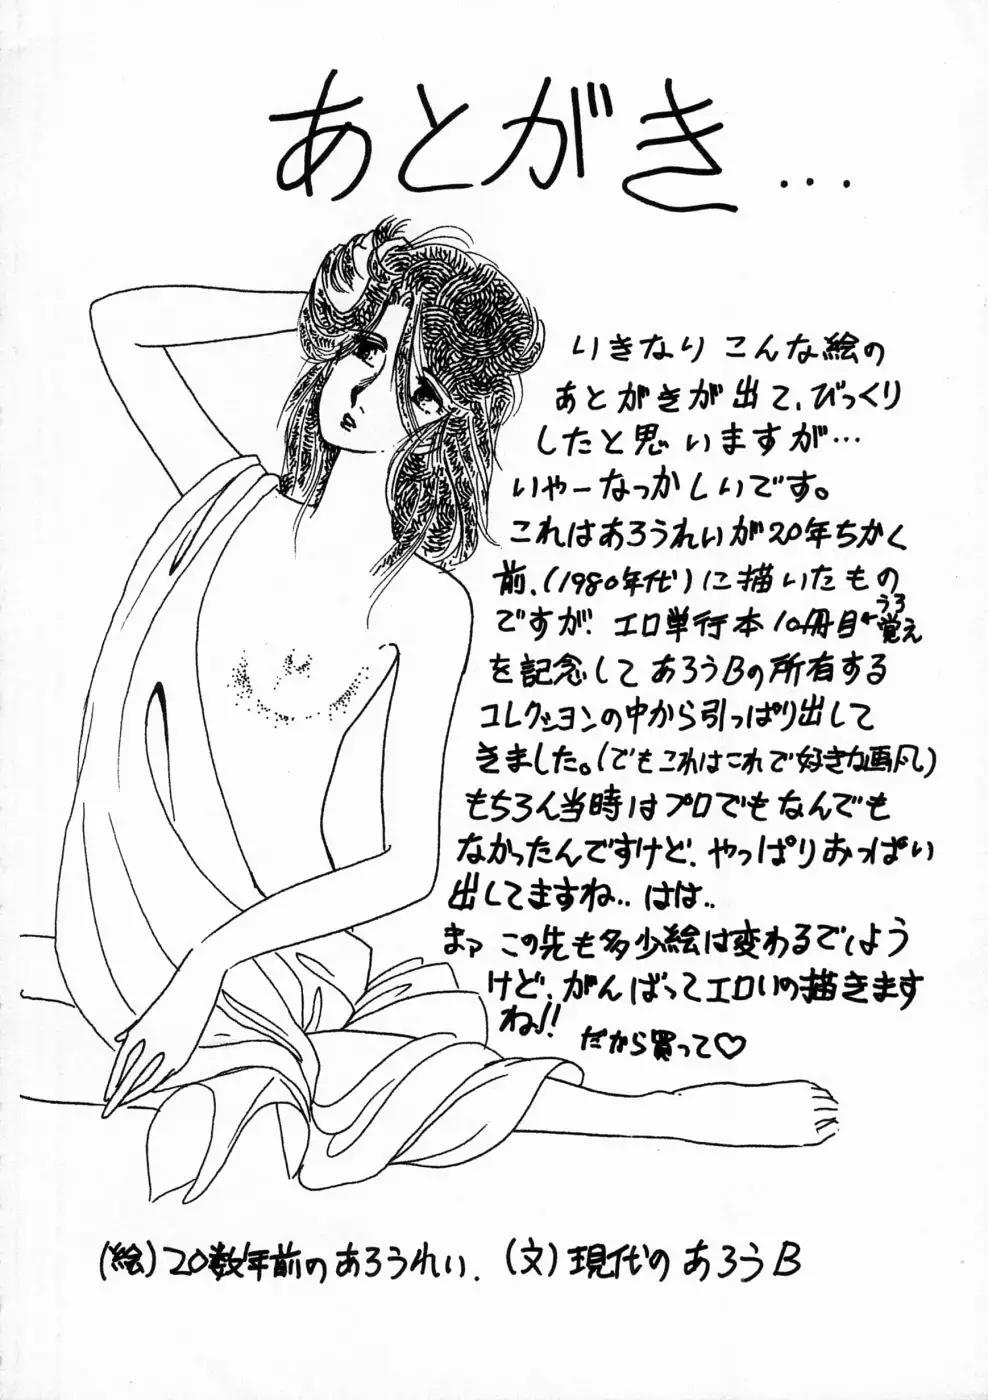 あとがき...
いきなりこんな絵の
あとがきが出て、びっくり
したと思いますが…
いやーなつかしいです。
これはあろうれいが20年ちかく
前、(1980年代)に描いたもの
ですが、エロ単行本10冊目←うろ覚え
を記念してあろうBの所有する
コレクションの中から引っぱり出して
きました。(でもこれはこれで好きな画風)
もちろん当時はプロでもなんでも
なかったんですけど、やっぱりおっぱい
出してますね..はは..
まァこの先も多少絵は変わるでしょう
けど、がんばってエロいの描きます
ね!!
だから買って♡
(絵)20数年前のあろうれい. (文)現代のあろうB